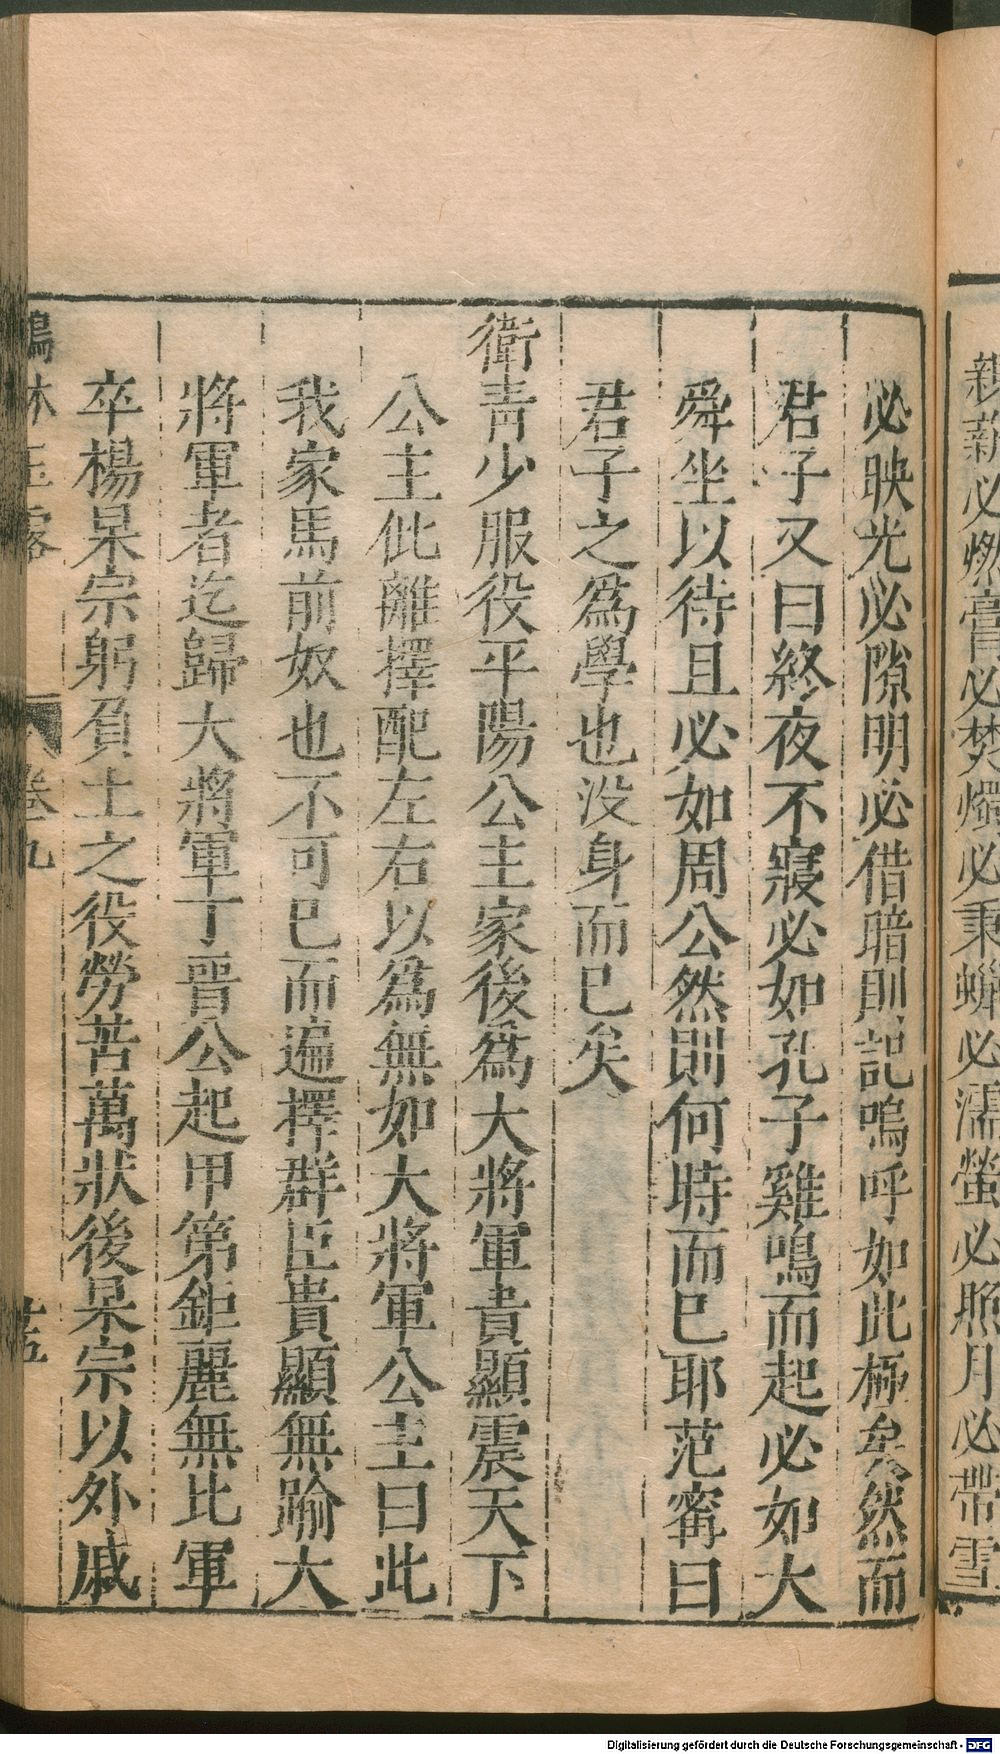 親薪必燃膏必焚燭必秉蠟必濡螢必照月必帶雪
必映光必隙明必借暗則記嗚呼如此極矣然而
君子又曰終夜不寢必如孔子雞鳴而起必如大
舜坐以待旦必如周公然則何時而巳耶范寗曰
君子之爲學也没身而巳矣
衛青少服役平陽公主家後爲大將軍貴顯震天下
公主仳離擇配左右以爲無如大將軍公主曰此
我家馬前奴也不可巳而遍擇群臣貴顯無踰大
將軍者迄歸大將軍丁晉公起甲第鉅麗無比軍
卒楊杲宗躬負土之役勞苦萬狀後杲宗以外戚
鶴林玉露 卷九
Digitalisierung gefördert durch die Deutsche Forschungsgemeinschaft - DFG